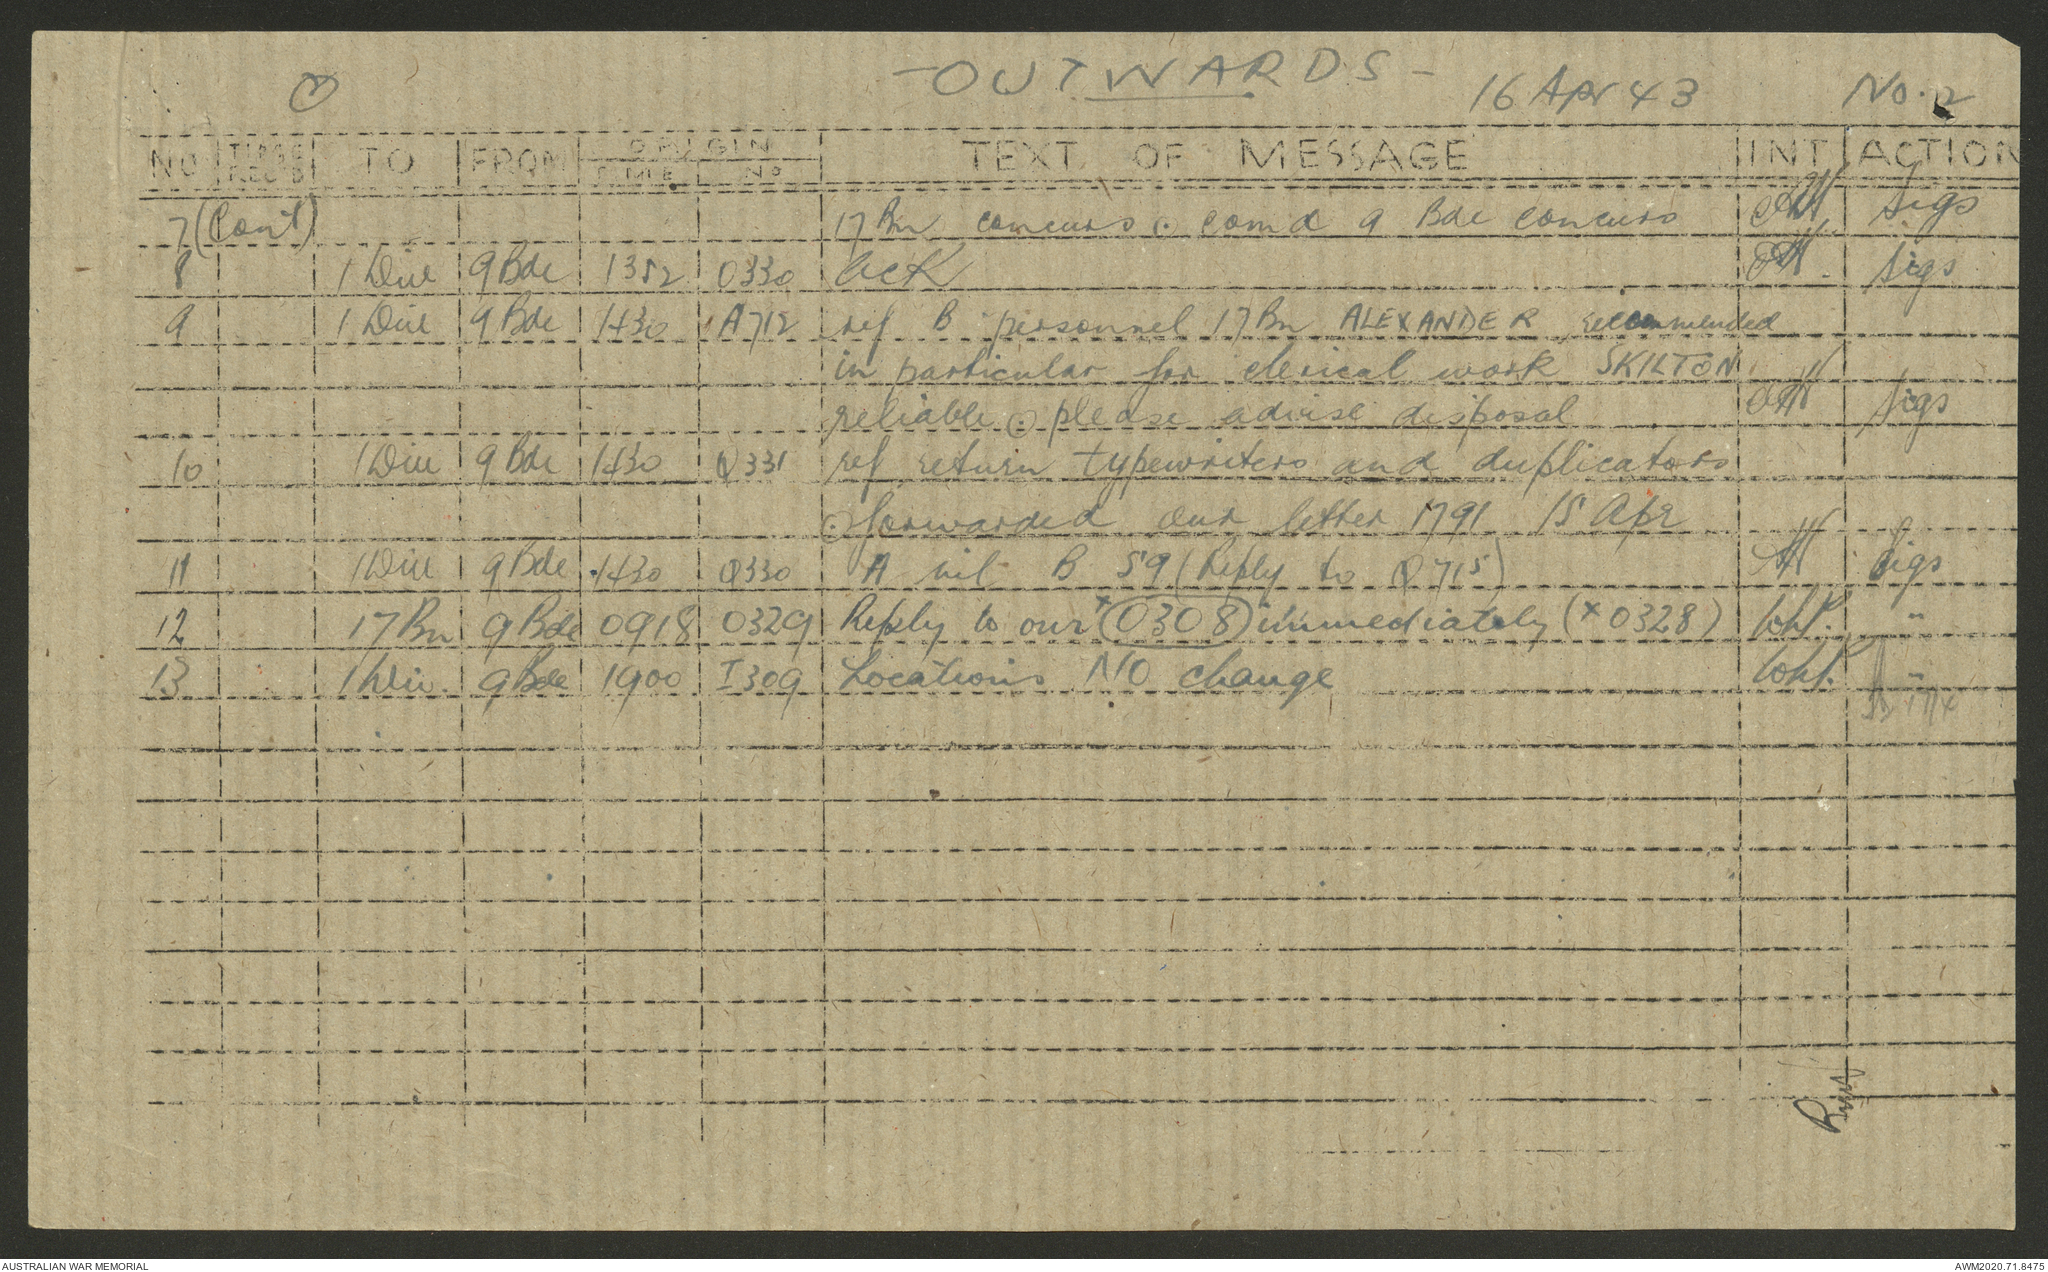 - OUTWARDS -
16 Apr 43 No. 2
NO TIME REC'D TO FROM ORIGIN TIME NO TEXT OF MESSAGE INT ACTION
7 (Cont) 17 Bn concurs ⊙ comd 9 Bde concurs Sigs
8 1 Div 9 Bde 1352 O330 ACK Sigs
9 1 Div 9 Bde 1430 A712 ref B personnel 17 Bn ALEXANDER recommended
in particular for clerical work SKILTON
reliable ⊙ please advise disposal Sigs
10 1 Div 9 Bde 1430 Q331 ref return typewriters and duplicators
⊙ forwarded our letter 1791 15 Apr
11 1 Div 9 Bde 1430 Q330 A nil B 59 (Reply to Q 715) Sigs
12 17 Bn 9 Bde 0918 O329 Reply to our x (O308) immediately (x O328) "
13 1 Div. 9 Bde 1900 I309 Locations NO change "
AUSTRALIAN WAR MEMORIAL AWM2020.71.8475